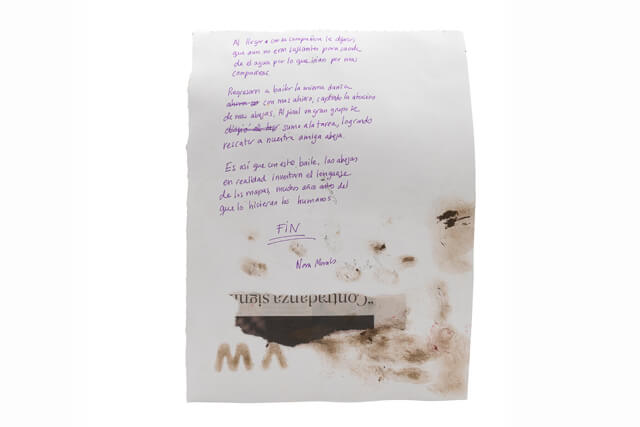 Al llegar con su compañera le dijeron
que aun no eran suficientes para sacarla
de el agua por lo que irían por mas
compañeras.
Regresaron a bailar la misma danza
ahora so con mas ahinco, captando la atención
de mas abejas. Al final un gran grupo se
sumo a la tarea, logrando
rescatar a nuestra amiga abeja.
Es así que con este baile, las abejas
en realidad inventaron el lenguaje
de los mapas, muchos años antes del
que lo hicieran los humanos.
FIN
Nora Morales
"Contradanza sign
MA